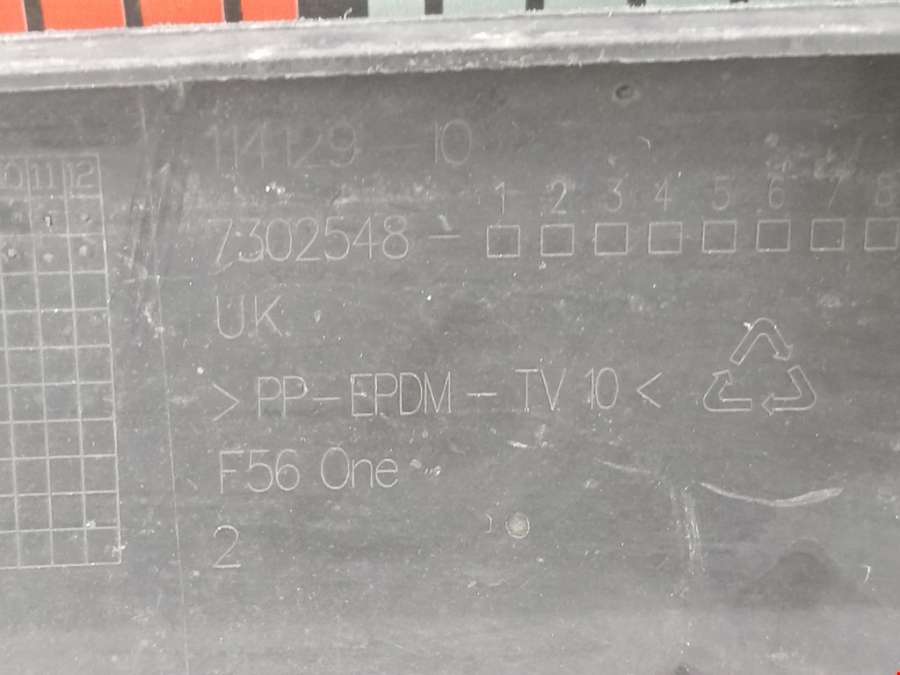 114129-10
0 11 12
1 2 3 4 5 6 7 8
7302548 -
UK
>PP-EPDM-TV 10<
F56 One
2